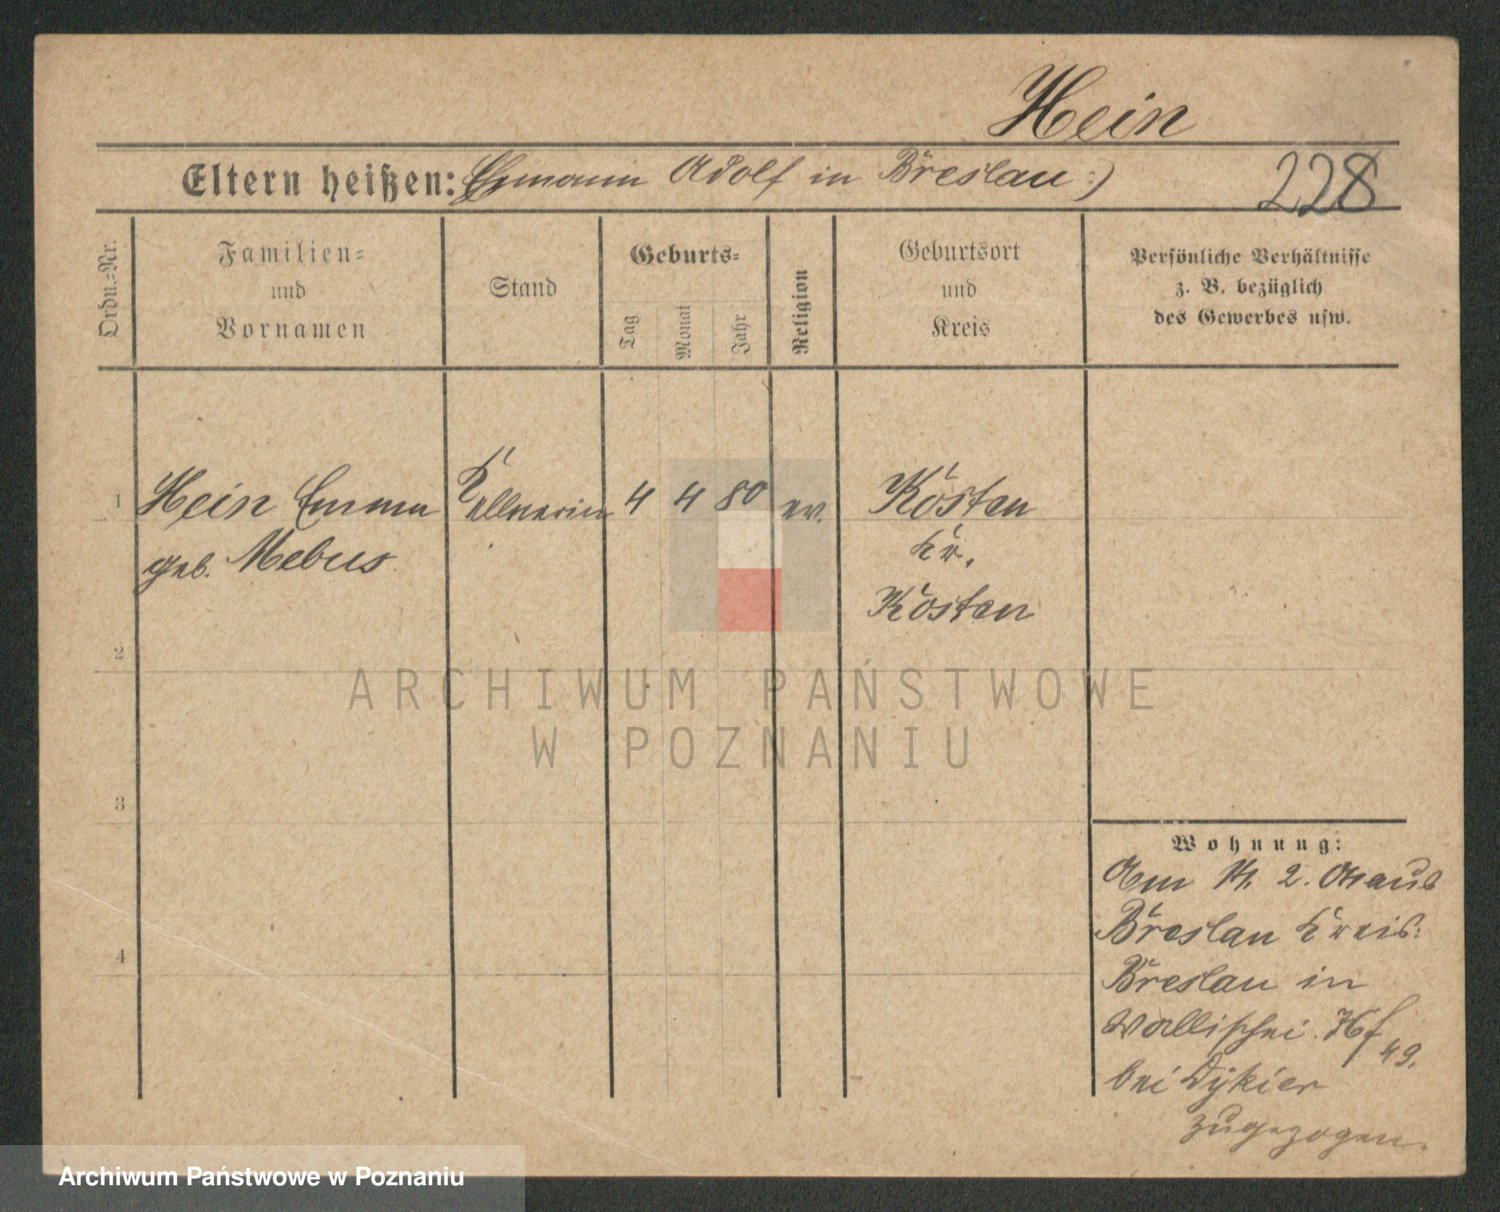 Hein
Eltern heißen: Ehemann Adolf in Breslau :)
228
Ordn.-Nr.
Familien-
und
Vornamen
Stand
Geburts-
Tag
Monat
Jahr
Religion
Geburtsort
und
Kreis
Persönliche Verhältnisse
z. B. bezüglich
des Gewerbes usw.
1 Hein Emma Kellnerin 4 4 80 ev. Kosten
geb. Mebus
Kr.
Kosten
2
3
4
Wohnung:
Am 14. 2. aus
Breslau Kreis:
Breslau in
Wallischei 76
49.
bei Dykier
zugezogen.
ARCHIWUM PAŃSTWOWE
W POZNANIU
Archiwum Państwowe w Poznaniu